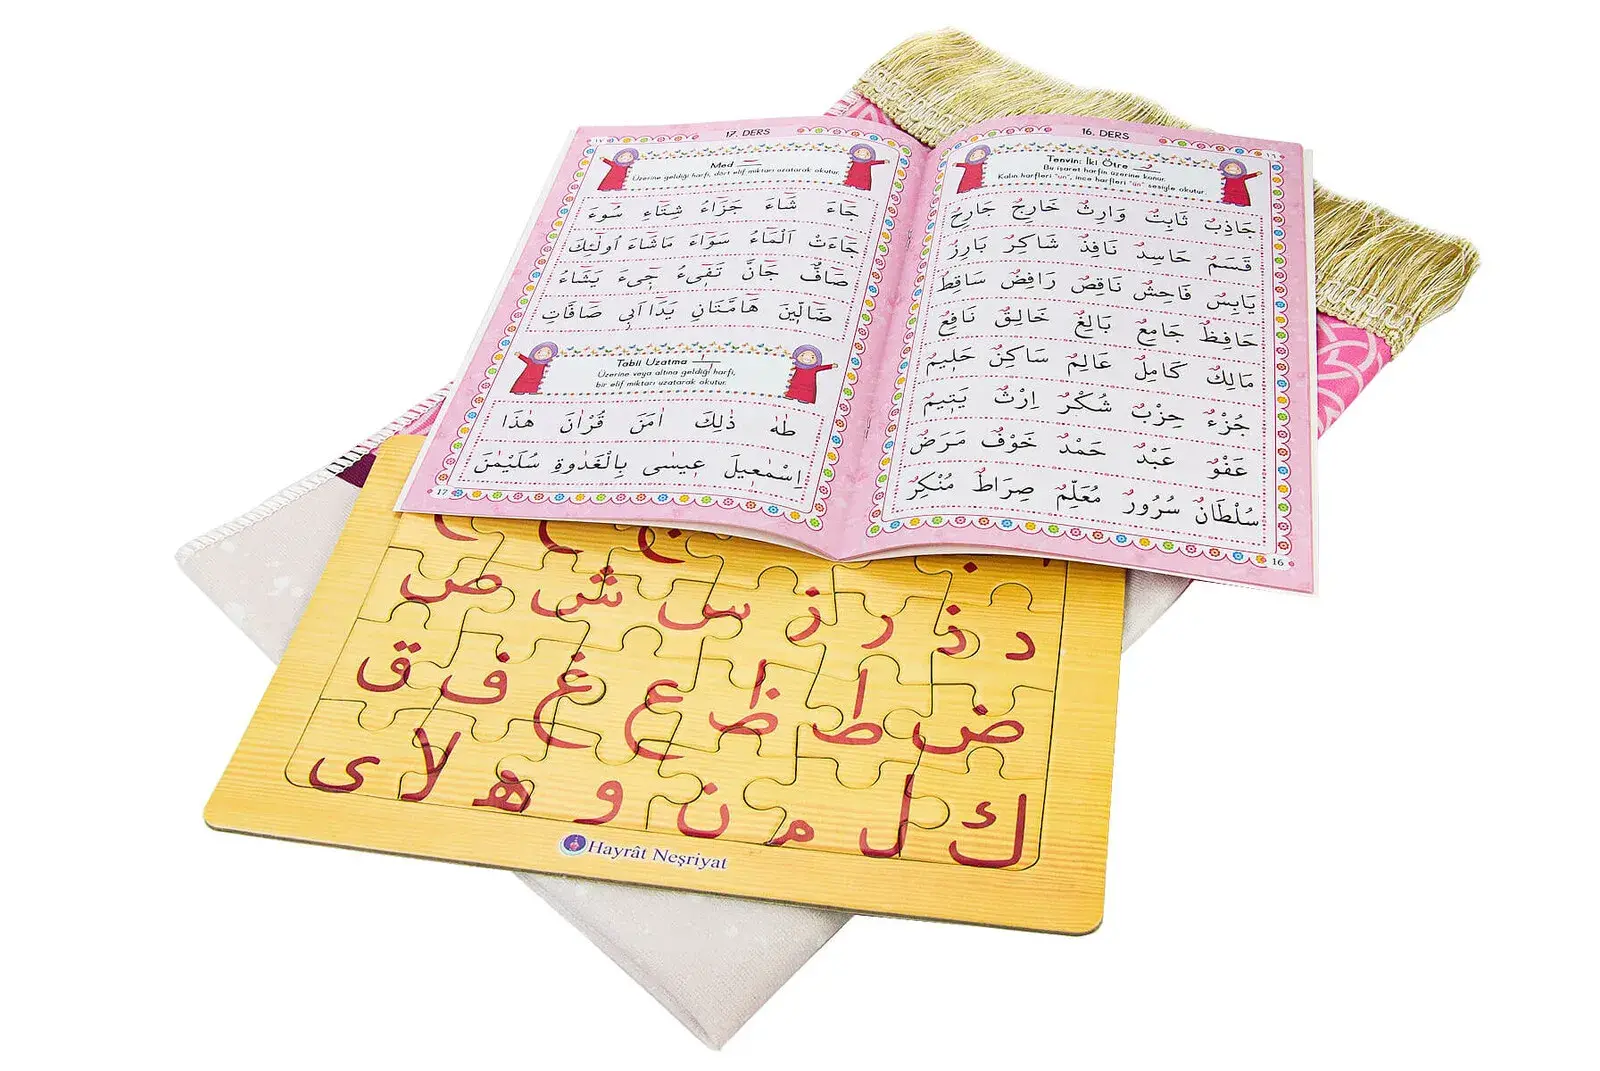 16. DERS
١٦
Tenvin: İki Ötre
Bu işaret harfin üzerine konur.
Kalın harfleri "un", ince harfleri "ün" sesiyle okutur.
جَاذِبٌ ثَابِتٌ وَارِثٌ خَارِجٌ جَارِحٌ
قَسَمٌ حَاسِدٌ نَافِذٌ شَاكِرٌ بَارِزٌ
يَابِسٌ فَاحِشٌ نَاقِصٌ رَافِضٌ سَاقِطٌ
حَافِظٌ جَامِعٌ بَالِغٌ خَالِقٌ نَافِعٌ
مَالِكٌ كَامِلٌ عَالِمٌ سَاكِنٌ حَلِيمٌ
جُزْءٌ حِزْبٌ شُكْرٌ اِرْثٌ يَتِيمٌ
عَفْوٌ عَبْدٌ حَمْدٌ خَوْفٌ مَرَضٌ
سُلْطَانٌ سُرُورٌ مُعَلِّمٌ صِرَاطٌ مُنْكِرٌ
16
17. DERS
١٧
Med
Üzerine geldiği harfi, dört elif miktarı uzatarak okutur.
جَٓاءَ شَٓاءَ جَزَٓاءُ شِتَٓاءِ سُٓوءَ
جَٓاءَتْ اَلْمَٓاءُ سَوَٓاءَ مَاشَٓاءَ اُولٰٓئِكَ
صَٓافٌّ جَٓانَّ تَفِٓىءُ جِٓىءَ يَشَٓاءُ
ضَٓالّ۪ينَ هَٓامَّتَانِ يَدَٓا اَب۪ى صَٓافَّاتِ
Tabii Uzatma
Üzerine veya altına geldiği harfi,
bir elif miktarı uzatarak okutur.
طٰهٰ ذٰلِكَ اٰمَنَ قُرْاٰنَ هٰذَا
اِسْمٰع۪يلَ ع۪يسٰى بِالْغَدٰوةِ سُلَيْمٰنَ
17
د ذ ر ز س ش ص
ض ط ظ ع غ ف ق
ك ل م ن و ه لا ى
Hayrât Neşriyat